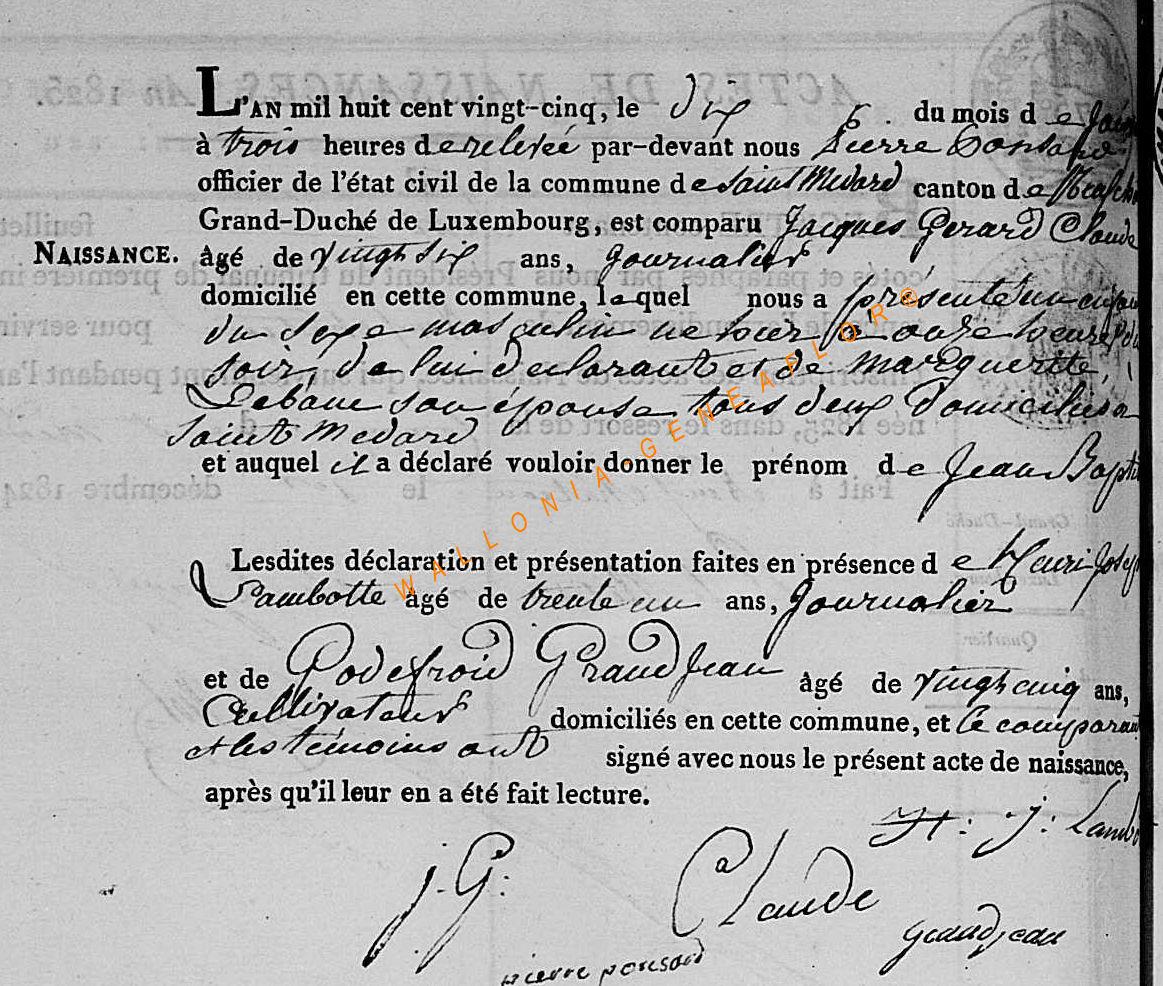 L'AN mil huit cent vingt-cinq, le Dix du mois d e
à trois heures de relevée par-devant nous Pierre Ponsard
officier de l'état civil de la commune de Saint Medard canton de
Grand-Duché de Luxembourg, est comparu Jacques Gerard Claude
NAISSANCE. âgé de vingt six ans, journalier
domicilié en cette commune, lequel nous a présenté un enfan
du sexe masculin né hier à onze heures du
soir, de lui declarant et de Marguerite
son épouse tous deux domiciliés a
Saint Medard
et auquel il a déclaré vouloir donner le prénom d e Jean Bapti
Lesdites déclaration et présentation faites en présence d e Henri Josep
Lambotte âgé de trente un ans, Journalier
et de Godefroid Grandjean âgé de vingt cinq ans,
Cultivateur domiciliés en cette commune, et le comparant
et les témoins ont signé avec nous le présent acte de naissance,
après qu'il leur en a été fait lecture.
H: J: Lambo
J. G: Claude
grandjean
pierre ponsard
WALLONIA-GENEAPLORG